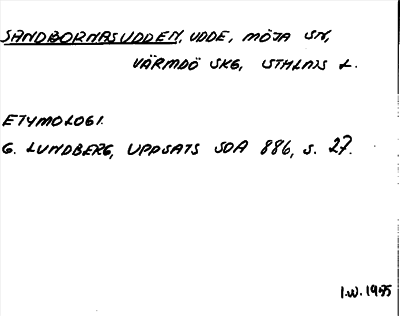 SANDBORNASUDDEN, UDDE, MÖJA SN,
VÄRMDÖ SKG, STHLMS L.
ETYMOLOGI.
G. LUNDBERG, UPPSATS SOA 886, S. 27.
I.W. 1955